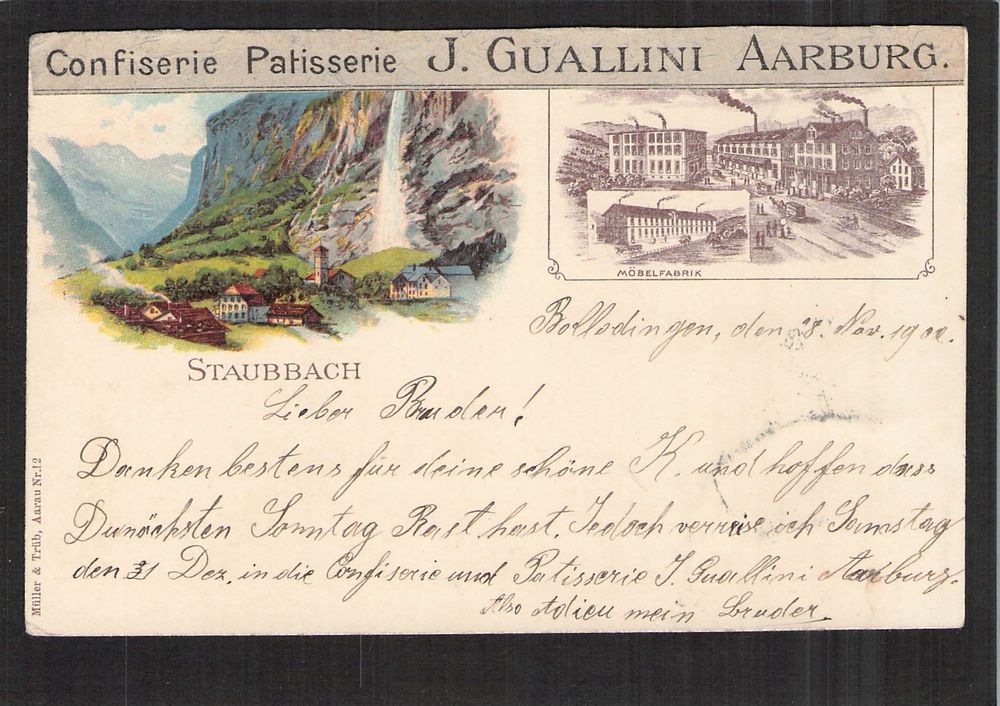 Confiserie Patisserie J. GUALLINI AARBURG.
MÖBELFABRIK
STAUBBACH
Bollodingen, den 28. Nov. 1900.
Lieber Bruder!
Danken bestens für deine schöne K. und hoffen dass
Dunächsten Sonntag Rast hast. Jedoch verreise ich Samstag
den 31 Dez. in die Confiserie und Patisserie J. Guallini Aarburg.
Also Adieu mein Bruder
Müller & Trüb, Aarau Nr. 12